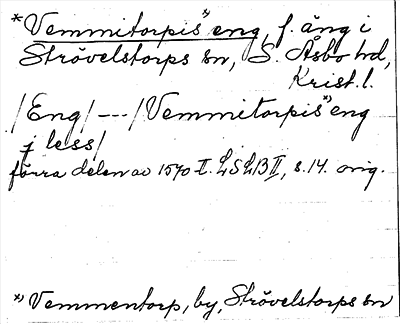 *Vemmitorpisˣ⁾ eng, f. äng i
Strövelstorps sn, S. Åsbo hd,
Krist. l.
/Eng/ --- /Vemmitorpisˣ⁾ eng
j less/
förra delen av 1570-t. LSLB II, s. 14. orig.
ˣ⁾ Vemmentorp, by, Strövelstorps sn